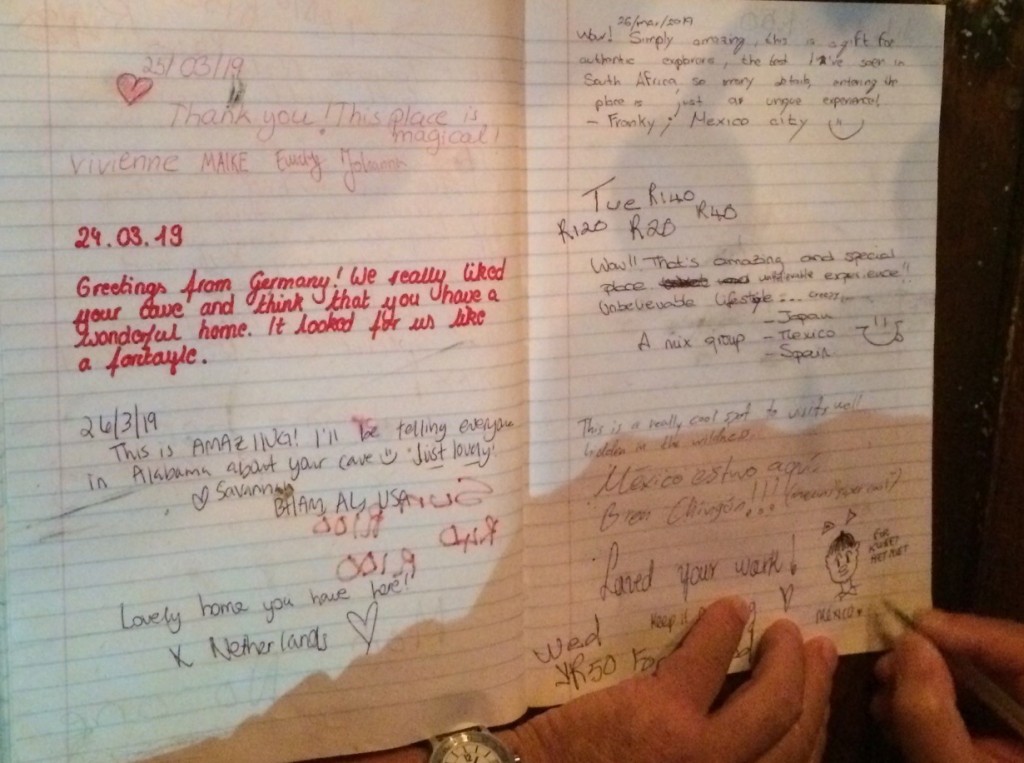 25/03/19
Thank you! This place is
magical!
Vivienne MAIKE Emily Johanna
24.03.19
Greetings from Germany! We really liked
your cave and think that you have a
wonderful home. It looked for us like
a fairtayle.
26/3/19
This is AMAZIING! I'll be telling everyone
in Alabama about your cave Just lovely!
Savannah
BHAM, AL, USA
R100
R100
Lovely home you have here!!
X Netherlands
26/mar/2019
Wow! Simply amazing, this is a gift for
authentic explorers, the best I've seen in
South Africa, so many details, entering the
place is just an unique experience!
- Franky; Mexico city
Tue R140
R120 R20 R40
Wow!! That's amazing and special
place experience!!
Unbelievable lifestyle ...
- Japan
A mix group - Mexico
- Spain
This is a really cool spot to visit well
hidden in the
Mexico estuvo aquí
Bien Chingón!!!
Loved your work!
Keep it
MEXICO
Wed
R50 For